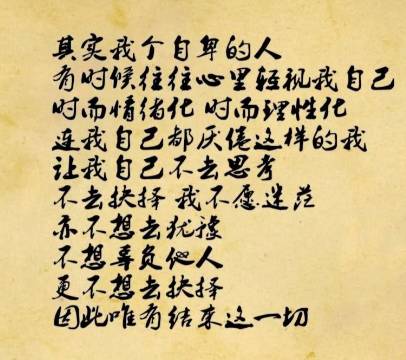 其实我个自卑的人
有时候往往心里轻视我自己
时而情绪化 时而理性化
连我自己都厌倦这样的我
让我自己不去思考
不去抉择 我不愿迷茫
亦不想去犹豫
不想辜负他人
更不想去抉择
因此唯有结束这一切